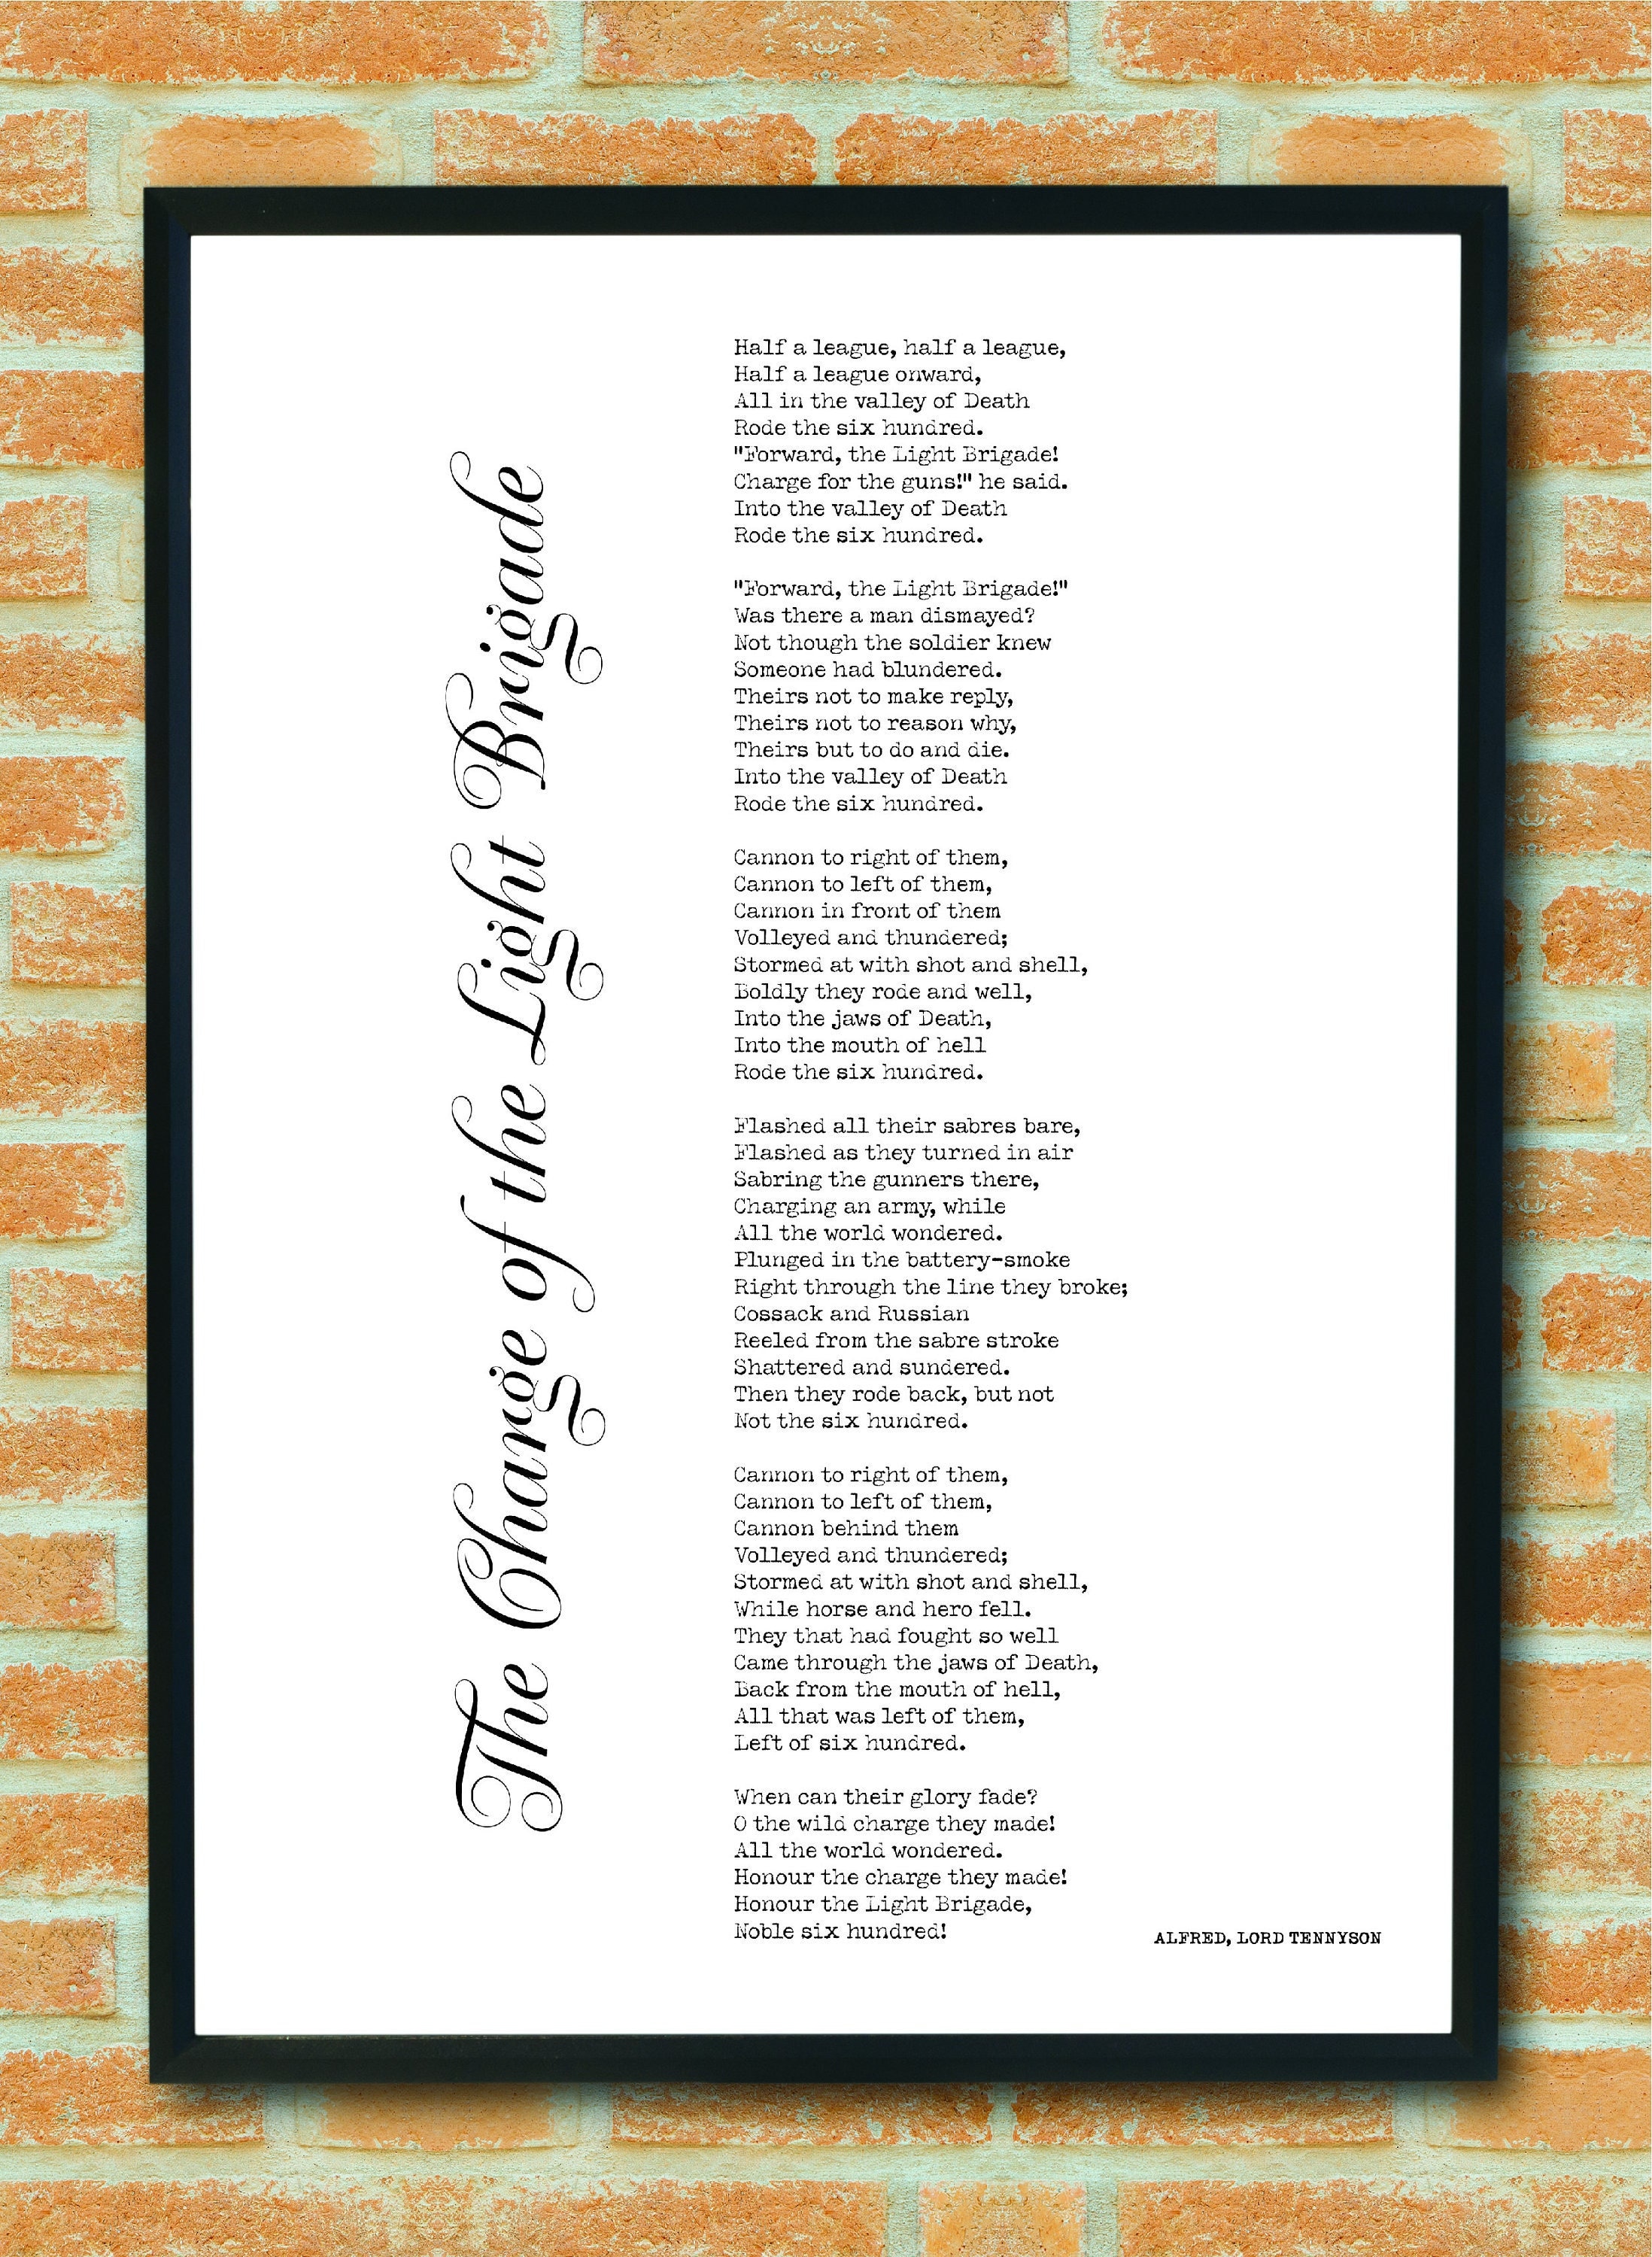 The Charge of the Light Brigade
Half a league, half a league,
Half a league onward,
All in the valley of Death
Rode the six hundred.
"Forward, the Light Brigade!
Charge for the guns!" he said.
Into the valley of Death
Rode the six hundred.
"Forward, the Light Brigade!"
Was there a man dismayed?
Not though the soldier knew
Someone had blundered.
Theirs not to make reply,
Theirs not to reason why,
Theirs but to do and die.
Into the valley of Death
Rode the six hundred.
Cannon to right of them,
Cannon to left of them,
Cannon in front of them
Volleyed and thundered;
Stormed at with shot and shell,
Boldly they rode and well,
Into the jaws of Death,
Into the mouth of hell
Rode the six hundred.
Flashed all their sabres bare,
Flashed as they turned in air
Sabring the gunners there,
Charging an army, while
All the world wondered.
Plunged in the battery-smoke
Right through the line they broke;
Cossack and Russian
Reeled from the sabre stroke
Shattered and sundered.
Then they rode back, but not
Not the six hundred.
Cannon to right of them,
Cannon to left of them,
Cannon behind them
Volleyed and thundered;
Stormed at with shot and shell,
While horse and hero fell.
They that had fought so well
Came through the jaws of Death,
Back from the mouth of hell,
All that was left of them,
Left of six hundred.
When can their glory fade?
O the wild charge they made!
All the world wondered.
Honour the charge they made!
Honour the Light Brigade,
Noble six hundred!
ALFRED, LORD TENNYSON